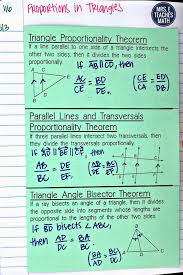 1/6
Proportions in Triangles
MRS. E TEACHES MATH
Triangle Proportionality Theorem
If a line parallel to one side of a triangle intersects the
other two sides, then it divides the two sides
proportionally.
If AB || CD, then
AC/CE = BD/DE
(CE/AC = ED/DB)
Parallel Lines and Transversals
Proportionality Theorem
If three parallel lines intersect two transversals, then
they divide the transversals proportionally.
then
AB/BC = DE/EF
Triangle Angle Bisector Theorem
If a ray bisects an angle of a triangle, then it divides
the opposite side into segments whose lengths are
proportional to the length of the other two sides.
If BD bisects ∠ABC,
then AD/DC = BA/BC